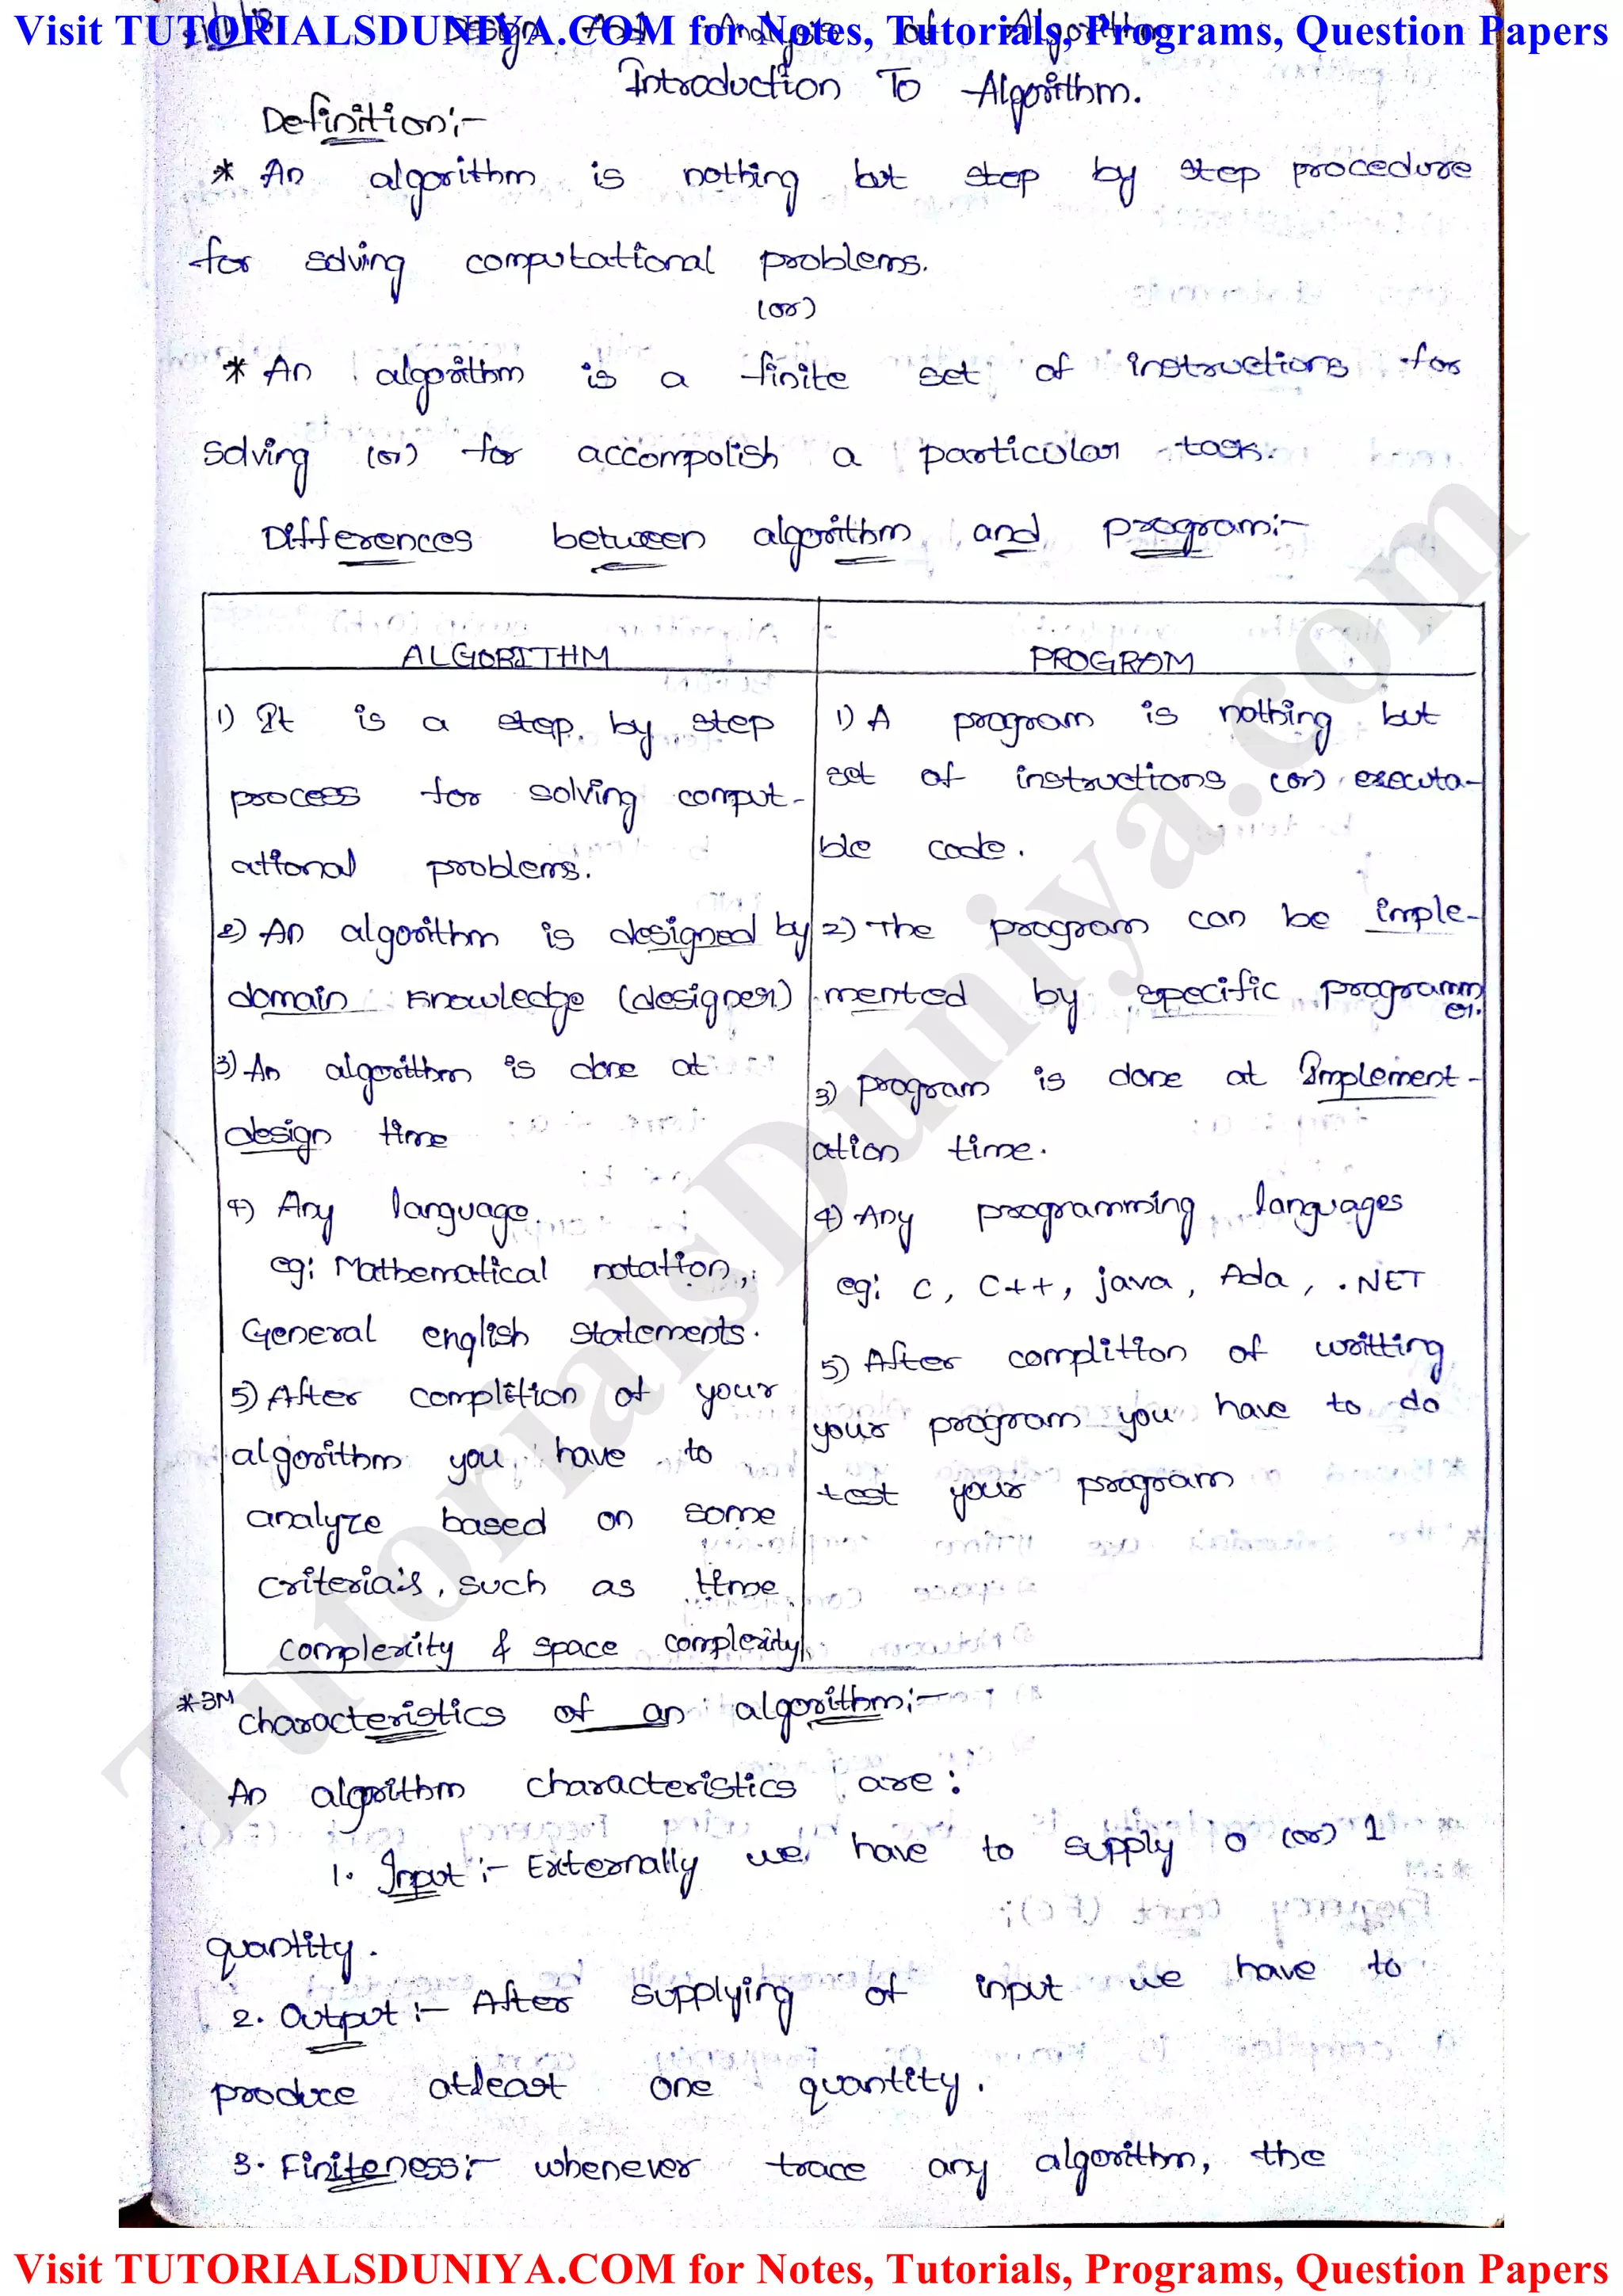 Visit TUTORIALSDUNIYA.COM for Notes, Tutorials, Programs, Question Papers
Design And Analysis of Algorithm
Introduction To Algorithm.
Definition:-
* An algorithm is nothing but step by step procedure
for solving computational problems.
(or)
* An algorithm is a finite set of instructions for
solving (or) for accompolish a particular task.
Differences between algorithm and program:-
ALGORITHM
1) It is a step by step
process for solving comput-
ational problems.
2) An algorithm is designed by
domain knowledge (designer)
3) An algorithm is done at
design time
4) Any language.
eg: Mathematical notation,
General english statements.
5) After complition of your
algorithm you have to
analyze based on some
criteria's, such as time
complexity & space complexity
PROGRAM
1) A program is nothing but
set of instructions (or) executa-
ble code.
2) The program can be imple-
mented by specific programm
er.
3) program is done at Implement-
ation time.
4) Any programming languages
eg: C, C++, java, Ada, .NET
5) After complittion of writting
your program you have to do
test your program
*3M characteristics of an algorithm:-
An algorithm characteristics are:
1. Input:- Externally we have to supply 0 (or) 1
quantity.
2. Output:- After supplying of input we have to
produce atleast one quantity.
3. Finiteness:- whenever trace any algorithm, the
TutorialsDuniya.com
Visit TUTORIALSDUNIYA.COM for Notes, Tutorials, Programs, Question Papers